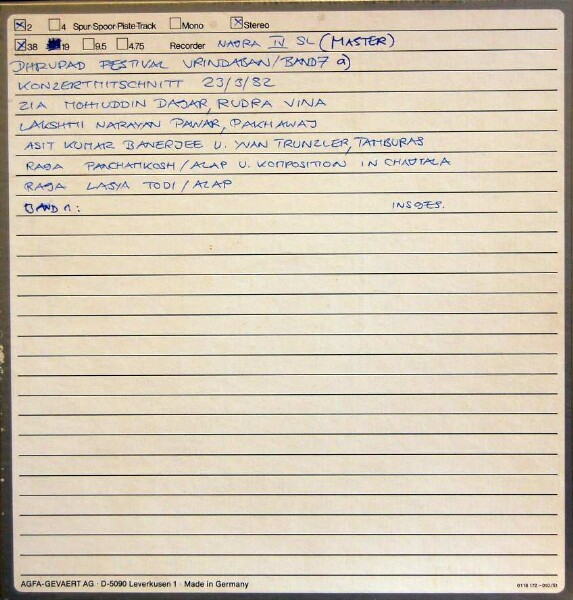 ☒2 ☐4 Spur-Spoor-Piste-Track ☐Mono ☒Stereo
☒38 19 ☐9.5 ☐4.75 Recorder NAGRA IV SL (MASTER)
DHRUPAD FESTIVAL VRINDABAN/BAND7 a)
KONZERTMITSCHNITT 23/3/82
ZIA MOHIUDDIN DAGAR, RUDRA VINA
LAKSHMI NARAYAN PAWAR, PAKHAWAJ
ASIT KUMAR BANERJEE U. YVAN TRUNZLER, TAMBURAS
RAGA PANCHAMKOSH/ALAP U. KOMPOSITION IN CHAUTALA
RAGA LASYA TODI/ALAP
BAND 1: INSGES.
AGFA-GEVAERT AG · D-5090 Leverkusen 1 · Made in Germany